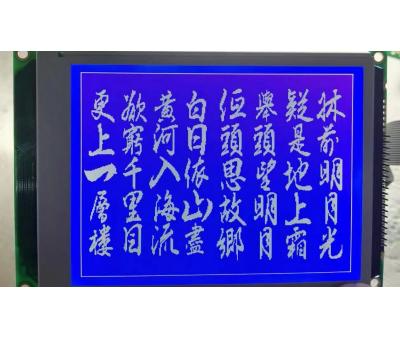 牀前明月光
疑是地上霜
舉頭望明月
低頭思故鄉
白日依山盡
黃河入海流
欲窮千里目
更上一層樓